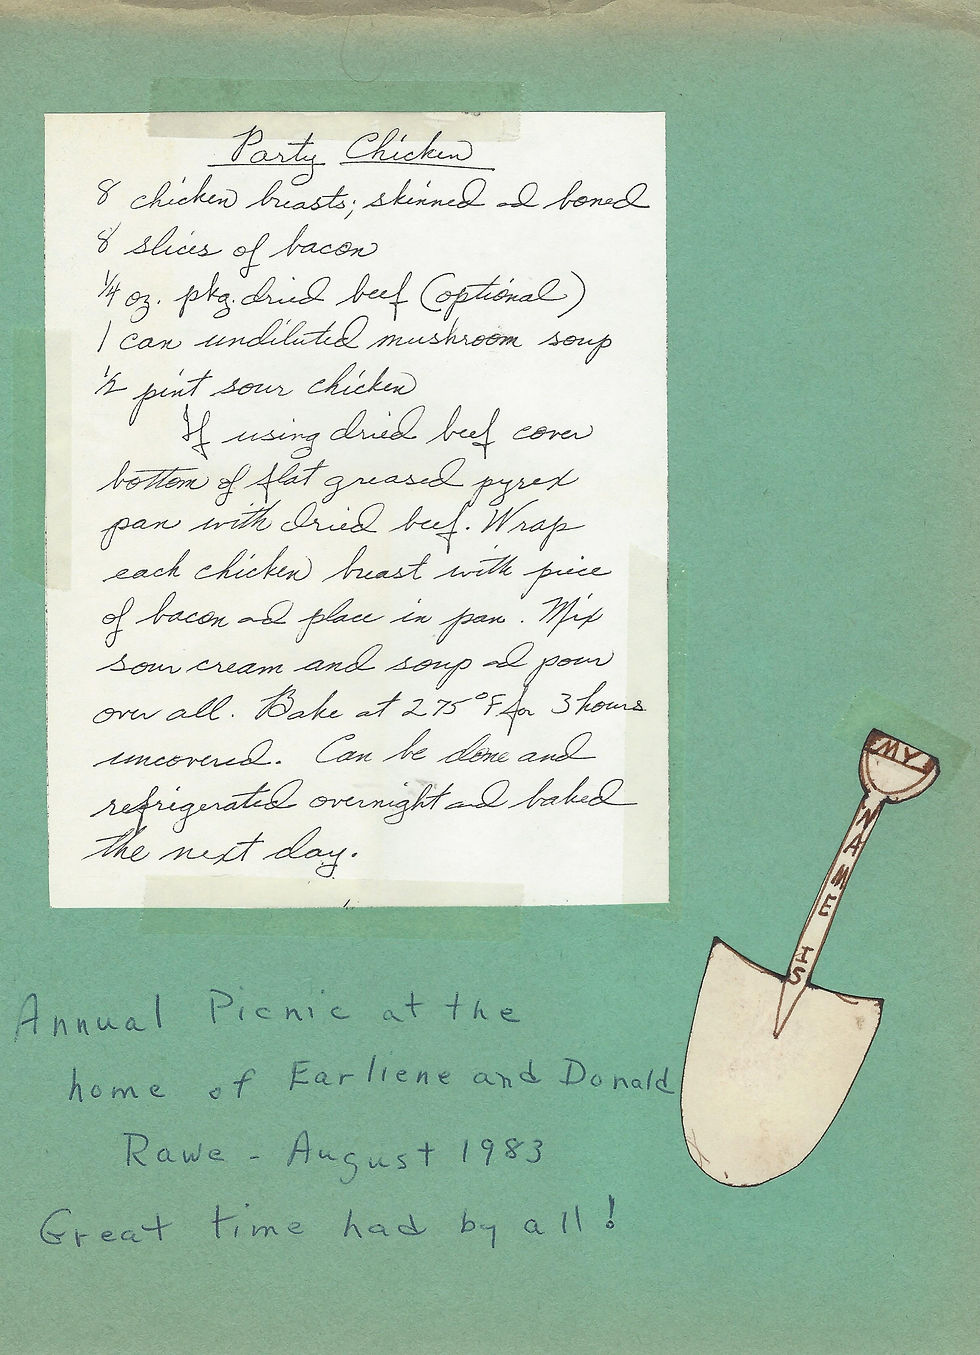 Party Chicken
8 chicken breasts; skinned and boned
8 slices of bacon
1/4 oz. pkg. dried beef (optional)
1 can undiluted mushroom soup
1/2 pint sour chicken
If using dried beef cover
bottom of flat greased pyrex
pan with dried beef. Wrap
each chicken breast with piece
of bacon and place in pan. Mix
sour cream and soup and pour
over all. Bake at 275°F for 3 hours
uncovered. Can be done and
refrigerated overnight and baked
the next day.
MY
NAME
IS
Annual Picnic at the
home of Earliene and Donald
Rawe - August 1983
Great time had by all!